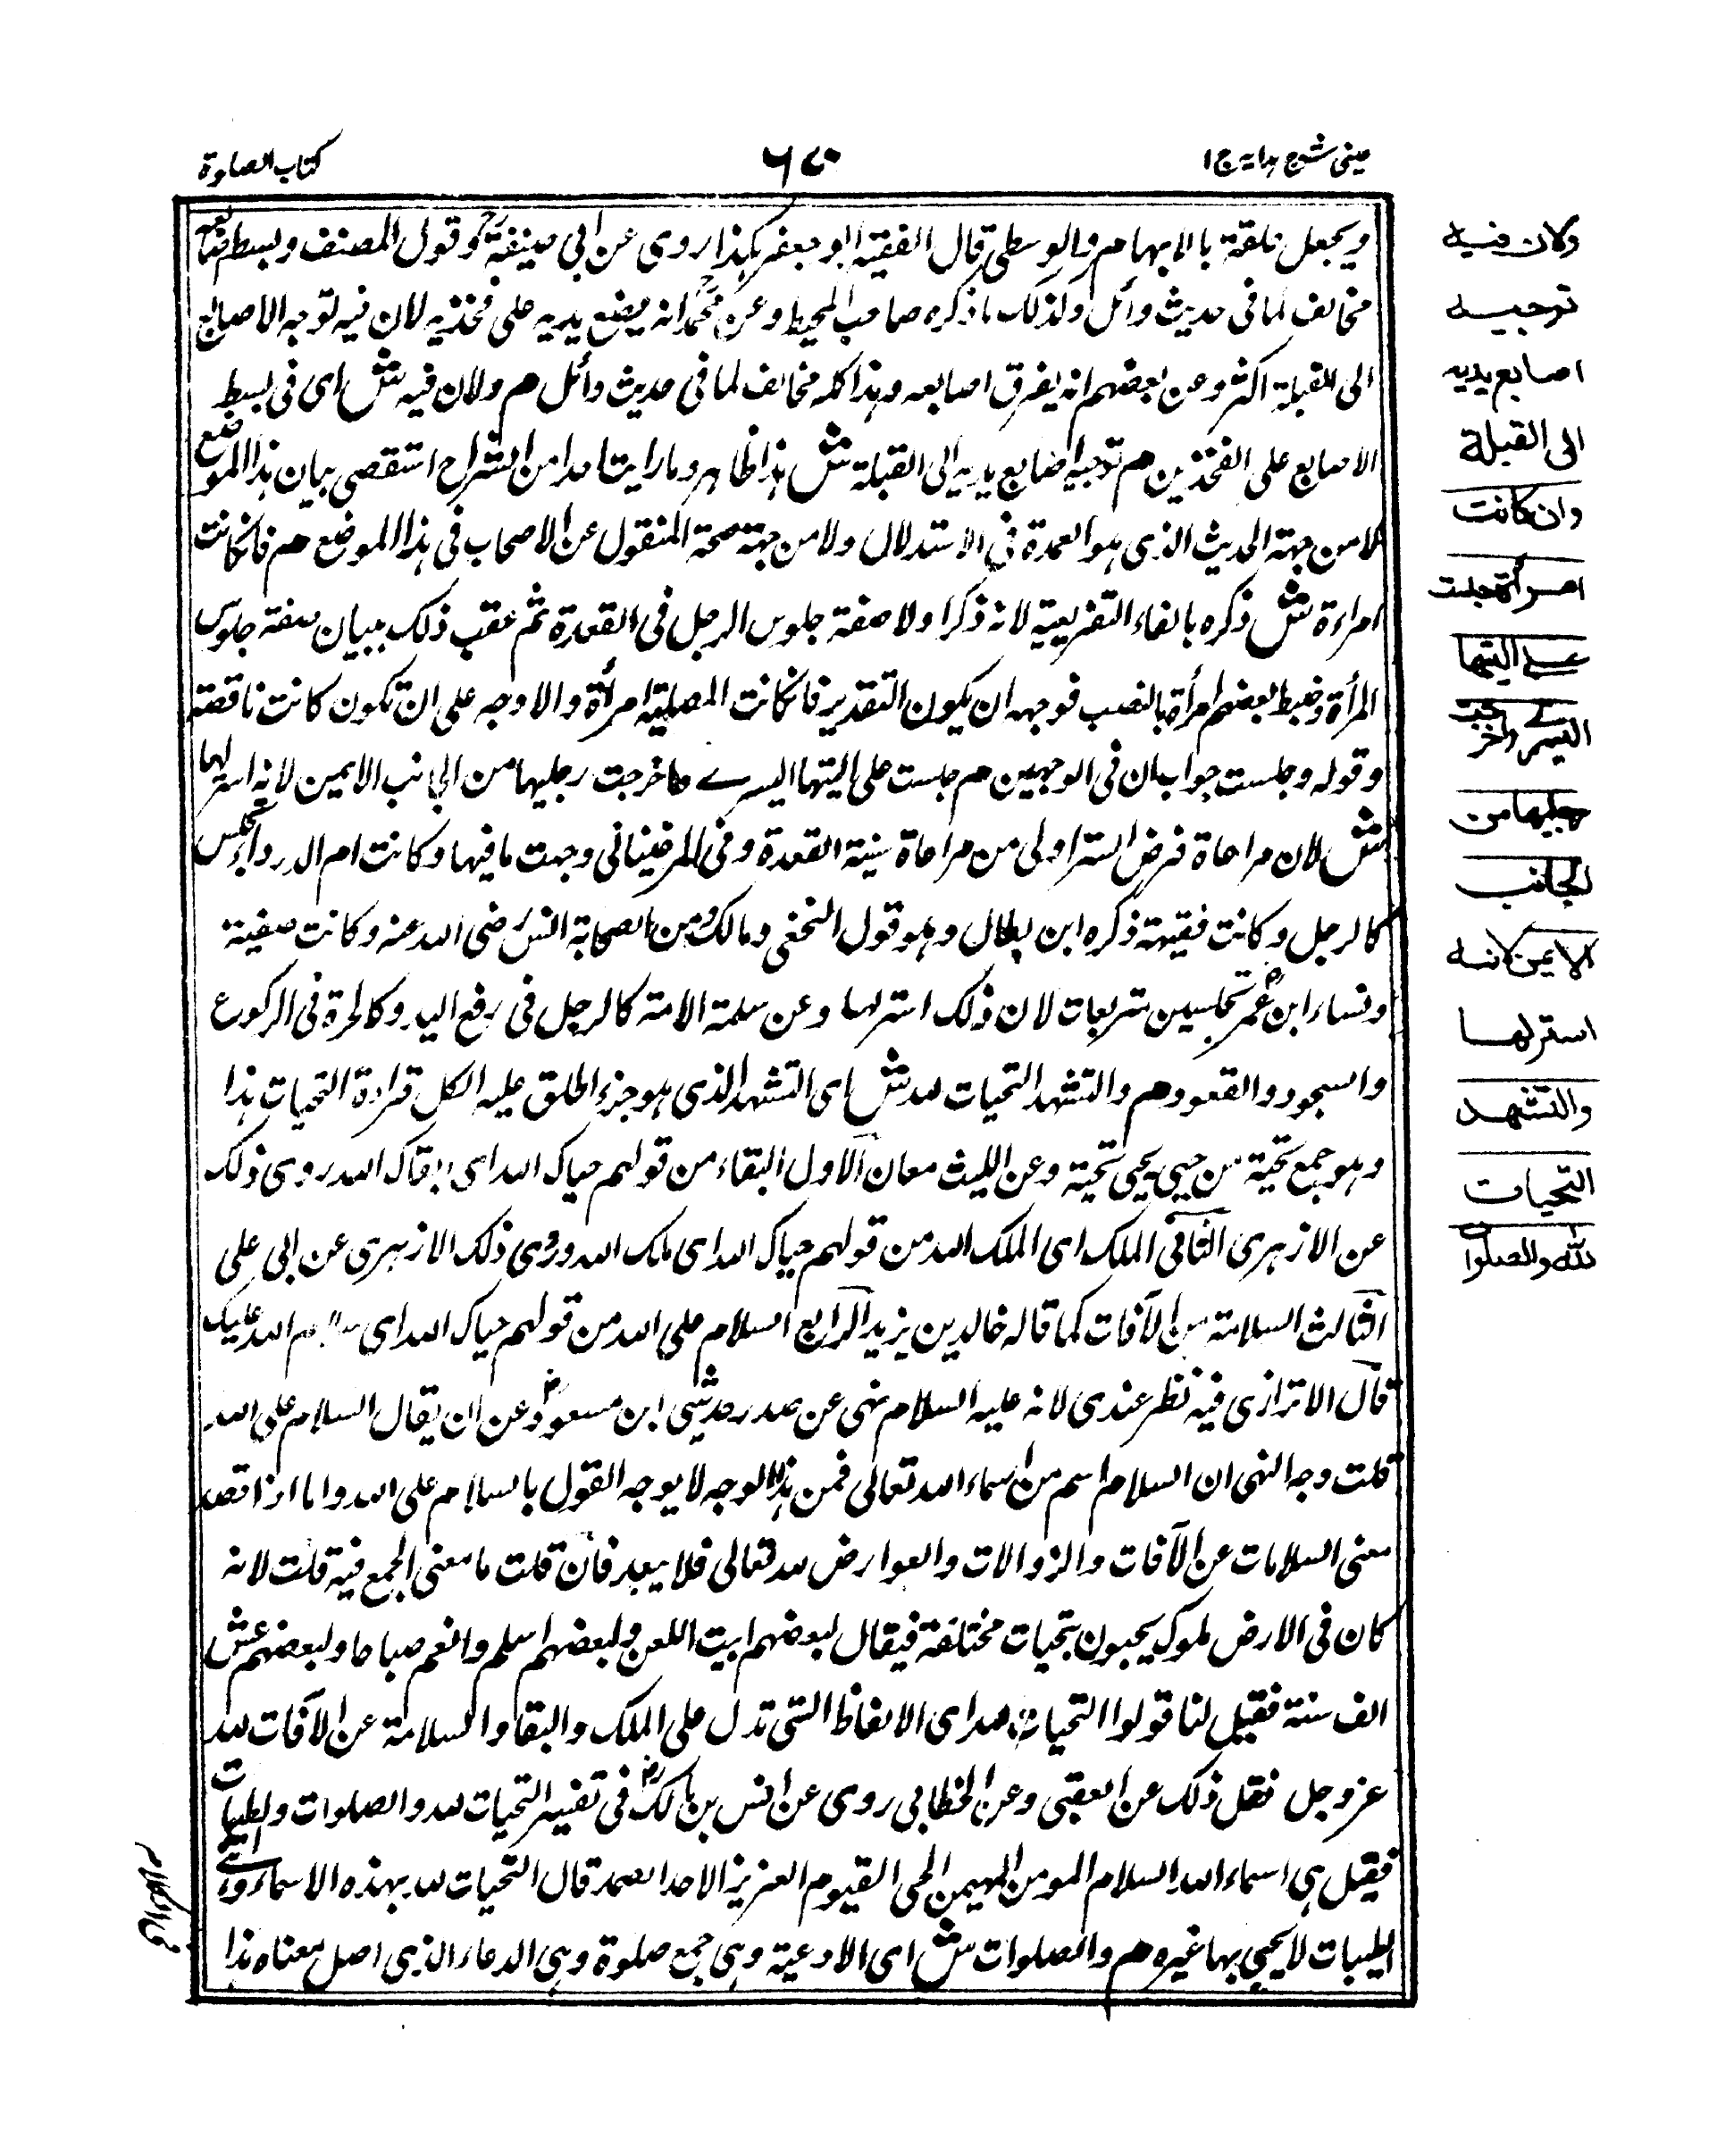 عینی شرح ہدایہ ج ١
٦٨٠
کتاب الصلوة
ویجعل حلقة بالابهام والوسطی قال الفقیه ابو جعفر هکذا روی عن ابی حنیفة رح وقول المصنف وبسط اصابعه
مخالف لما فی حدیث وائل وکذلک ما ذکره صاحب المحیط وعن محمد رح انه یضع یدیه علی فخذیه لان فیه توجه الاصابع
الی القبلة اکثر وعن بعضهم انه یفرق اصابعه وهذا کله مخالف لما فی حدیث وائل م ولان فیه ش ای فی بسط
الاصابع علی الفخذین م توجیه اصابع یدیه الی القبلة ش هذا ظاهر وما رایت احدا من الشراح استقصی بیان هذا الموضع
لا من جهة الحدیث الذی هو العمدة فی الاستدلال ولا من جهة صحة المنقول عن الاصحاب فی هذا الموضع م فان کانت
امراءة ش ذکره بالفاء التفریعیة لانه ذکر اولا صفة جلوس الرجل فی القعدة ثم عقب ذلک ببیان صفة جلوس
المرأة وضبط بعضهم امرأة بالنصب فوجهه ان یکون التقدیر فان کانت المصلیة امرأة والاوجه علی ان تکون کانت ناقصة
وقوله وجلست جواب ان فی الوجهین م جلست علی الیتها الیسرے واخرجت رجلیها من الجانب الایمن لانه استر لها
ش لان مراعاة فرض الستر اولی من مراعاة سنیة القعدة وفی المرغینانی وجهت ما فیها وکانت ام الدرداء تجلس
کالرجل وکانت فقیهة ذکره ابن بطال وهو قول النخعی ومالک ومن الصحابة انس رضی الله عنه وکانت صفیة
ونساء ابن عمر رض تجلسین متربعات لان ذلک استر لها وعن سلمة الامة کالرجل فی رفع الید وکالحرة فی الرکوع
والسجود والقعود م والتشهد التحیات لله ش ای التشهد الذی هو جزء اطلق علیه الکل قراءة التحیات هذا
وهو جمع تحیة من حیی یحیی تحیة وعن اللیث معان الاول البقاء من قولهم حیاک الله ای ابقاک الله روی ذلک
عن الازهری الثانی الملک ای الملک لله من قولهم حیاک الله ای ملک الله وروی ذلک الازهری عن ابی علی
الثالث السلامة من الآفات کما قاله خالد بن یزید الرابع السلام علی الله من قولهم حیاک الله ای سلام الله علیک
قال الاترازی فیه نظر عندی لانه علیه السلام نهی عن صدر حدیثی ابن مسعود رض عن ان یقال السلام علی الله
قلت وجه النهی ان السلام اسم من اسماء الله تعالی فمن هذا الوجه لا یوجه القول بالسلام علی الله واما اذا قصد
معنی السلامات عن الآفات والزوالات والعوارض لله تعالی فلا یبعد فان قلت ما معنی الجمع فیه قلت لانه
کان فی الارض ملوک یحیون بتحیات مختلفة فیقال لبعضهم ابیت اللعن ولبعضهم اسلم وانعم صباحا ولبعضهم عش
الف سنة فقیل لنا قولوا التحیات لله ای الالفاظ التی تدل علی الملک والبقاء والسلامة عن الآفات لله
عزوجل نقل ذلک عن القتبی وعن الخطابی روی عن انس بن مالک رض فی تفسیر التحیات لله والصلوات والطیبات
فقیل هی اسماء الله السلام المومن المهیمن الحی القیوم العزیز الاحد الصمد قال التحیات لله بهذه الاسماء
الطیبات لا یحیی بها غیره م والصلوات ش ای الادعیة وهی جمع صلوة وهی الدعاء الذی اصل معناه هذا
ولان فیه
توجیه
اصابع یدیه
الی القبلة
وان کانت
امرأة جلست
علے الیتها
الیسرے واخرجت
رجلیها من
الجانب
الایمن لانه
استر لها
والتشهد
التحیات
لله والصلوات